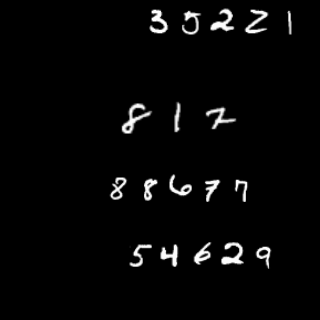 35221
817
88677
54629